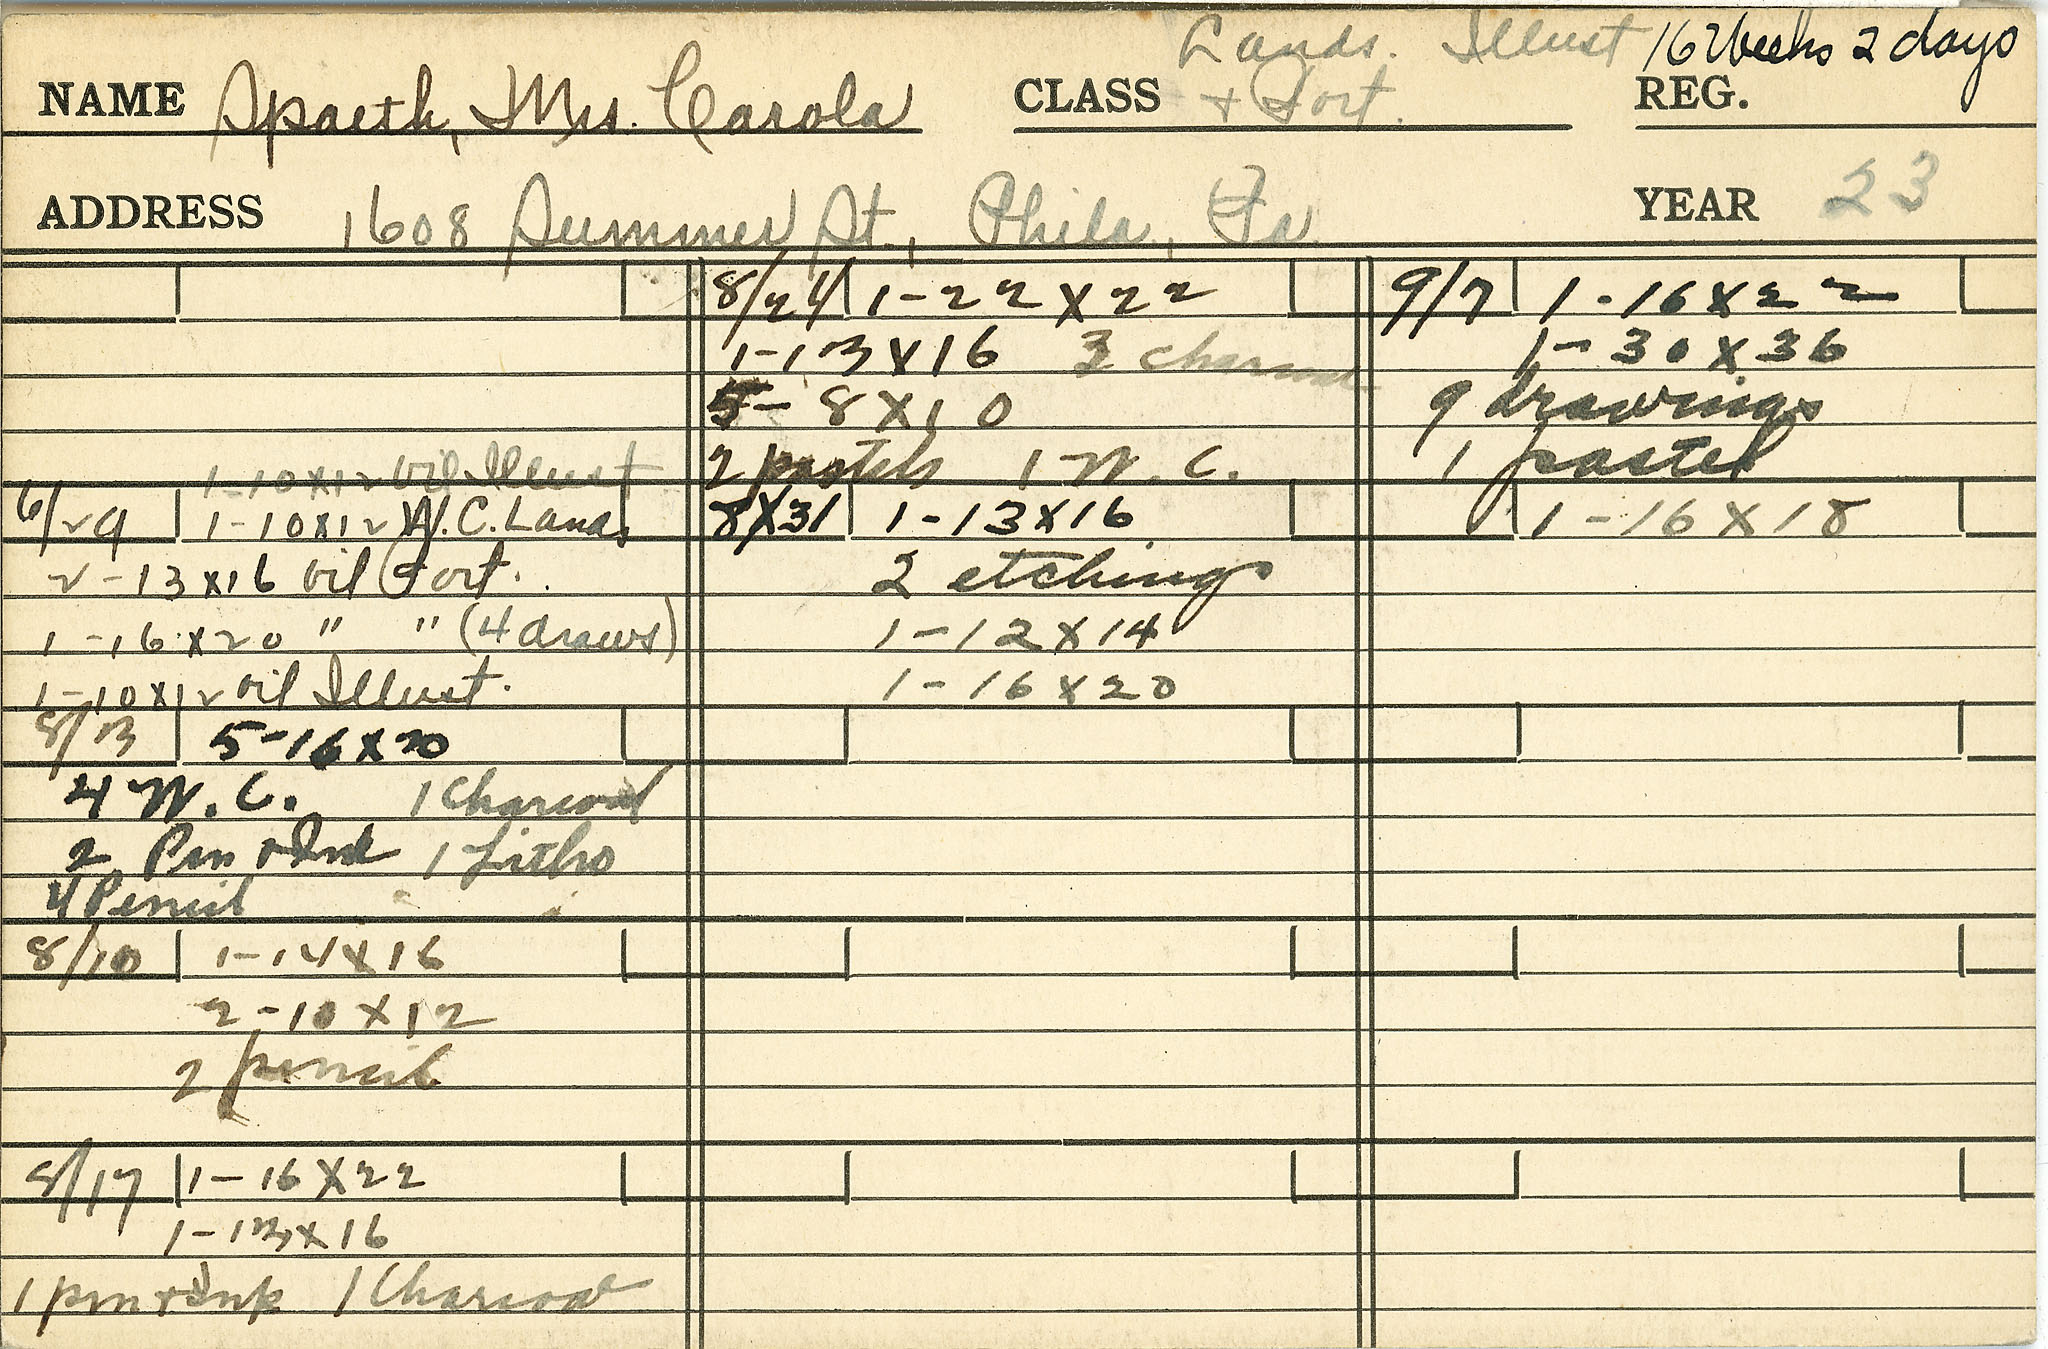 Lands. Illust 16 Weeks 2 days
NAME Spaeth, Mrs. Carola CLASS + Port. REG.
ADDRESS 1608 Summer St., Phila., Pa. YEAR 23
1-10x12 Oil Illust
6/29 1-10x12 W.C. Lands
2-13x16 Oil Port.
1-16x20 " " (4 draws)
1-10x12 Oil Illust.
8/3 5-16x20
4 W.C. 1 Charcoal
2 Pen & Ink 1 Litho
4 Pencil
8/10 1-14x16
2-10x12
2 pencil
8/17 1-16x22
1-13x16
1 pen & Ink 1 Charcoal
8/24 1-22x22
1-13x16 3 charcoal
5-8x10
2 pastels 1 W.C.
8/31 1-13x16
2 etchings
1-12x14
1-16x20
9/7 1-16x22
1-30x36
9 drawings
1 pastel
1-16x18